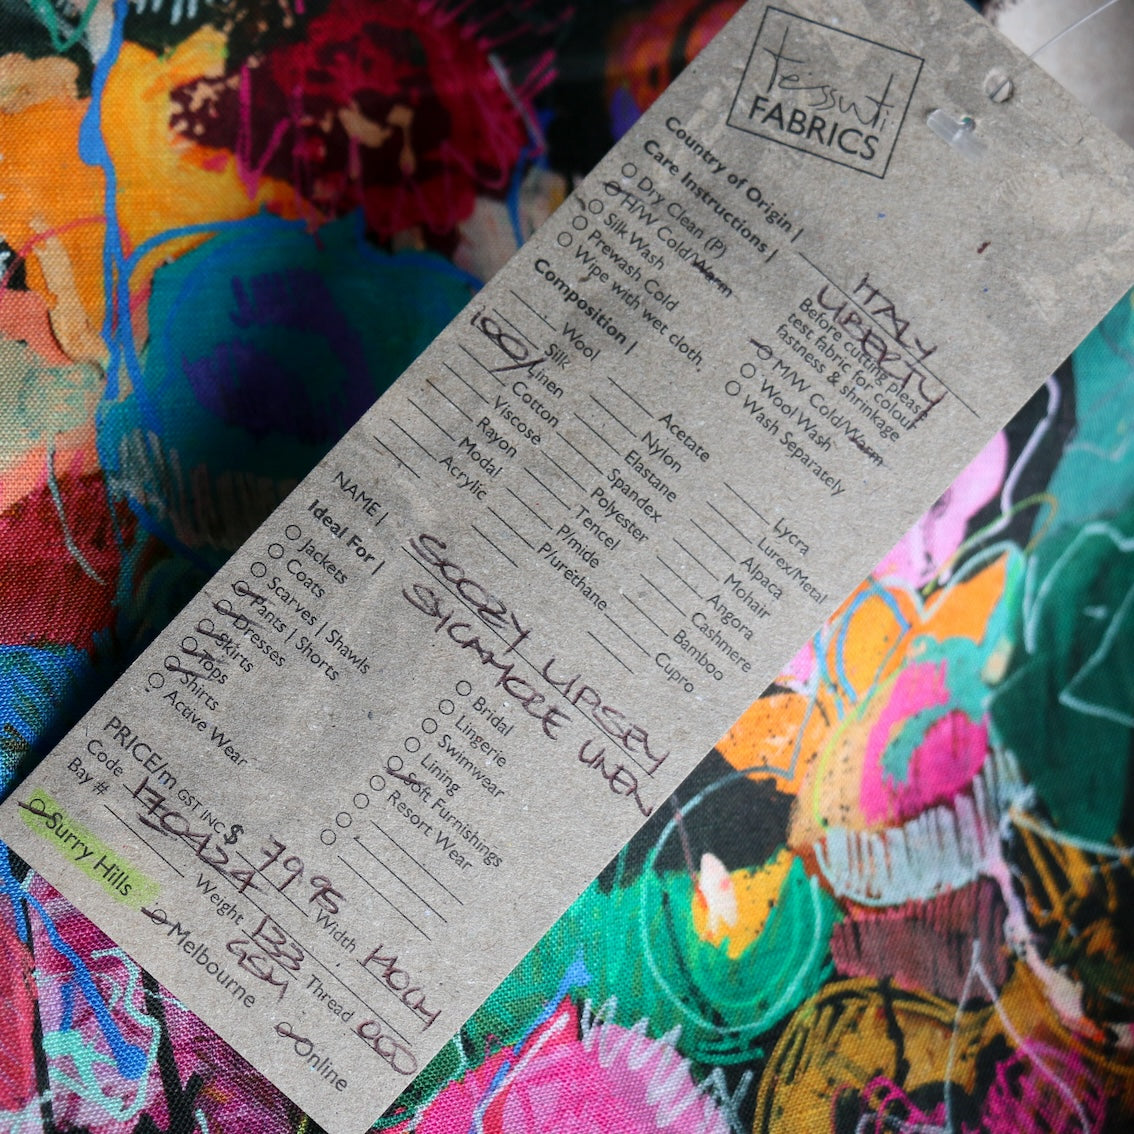 tessuti
FABRICS
Country of Origin | ITALY
LIBERTY
Care Instructions |
Dry Clean (P)
H/W Cold/Warm
Silk Wash
Prewash Cold
Wipe with wet cloth,
Before cutting please
test fabric for colour
fastness & shrinkage
M/W Cold/Warm
Wool Wash
Wash Separately
Composition |
Wool
Silk
100% Linen
Cotton
Viscose
Rayon
Modal
Acrylic
Acetate
Nylon
Elastane
Spandex
Polyester
Tencel
P/mide
P/urethane
Lycra
Lurex/Metal
Alpaca
Mohair
Angora
Cashmere
Bamboo
Cupro
NAME | SOOZY LIPSEY
SYCAMORE LINEN
Ideal For |
Jackets
Coats
Scarves | Shawls
Pants | Shorts
Dresses
Skirts
Tops
Shirts
Active Wear
Bridal
Lingerie
Swimwear
Lining
Soft Furnishings
Resort Wear
PRICE/m GST INC $ 79.95
Code 170424 Width 140CM
Bay # Weight 133 GSM Thread
Surry Hills Melbourne Online